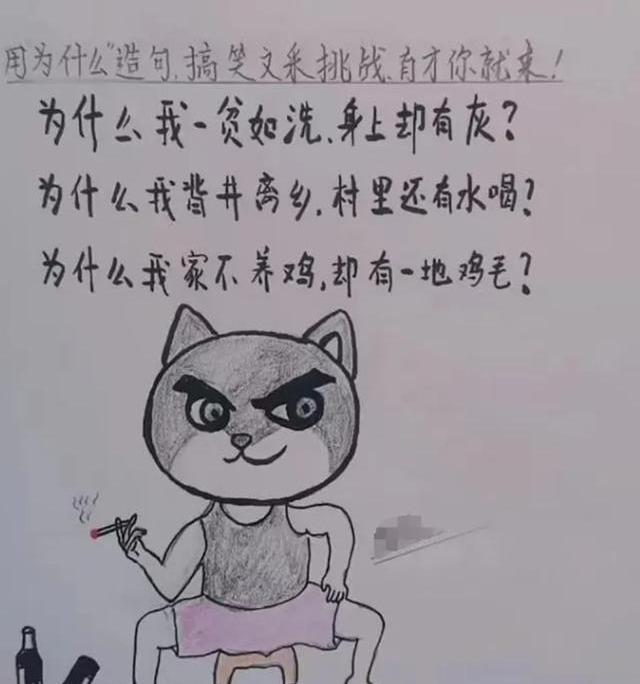 用为什么"造句,搞笑文采挑战,有才你就来!
为什么我一贫如洗,身上却有灰?
为什么我背井离乡,村里还有水喝?
为什么我家不养鸡,却有一地鸡毛?